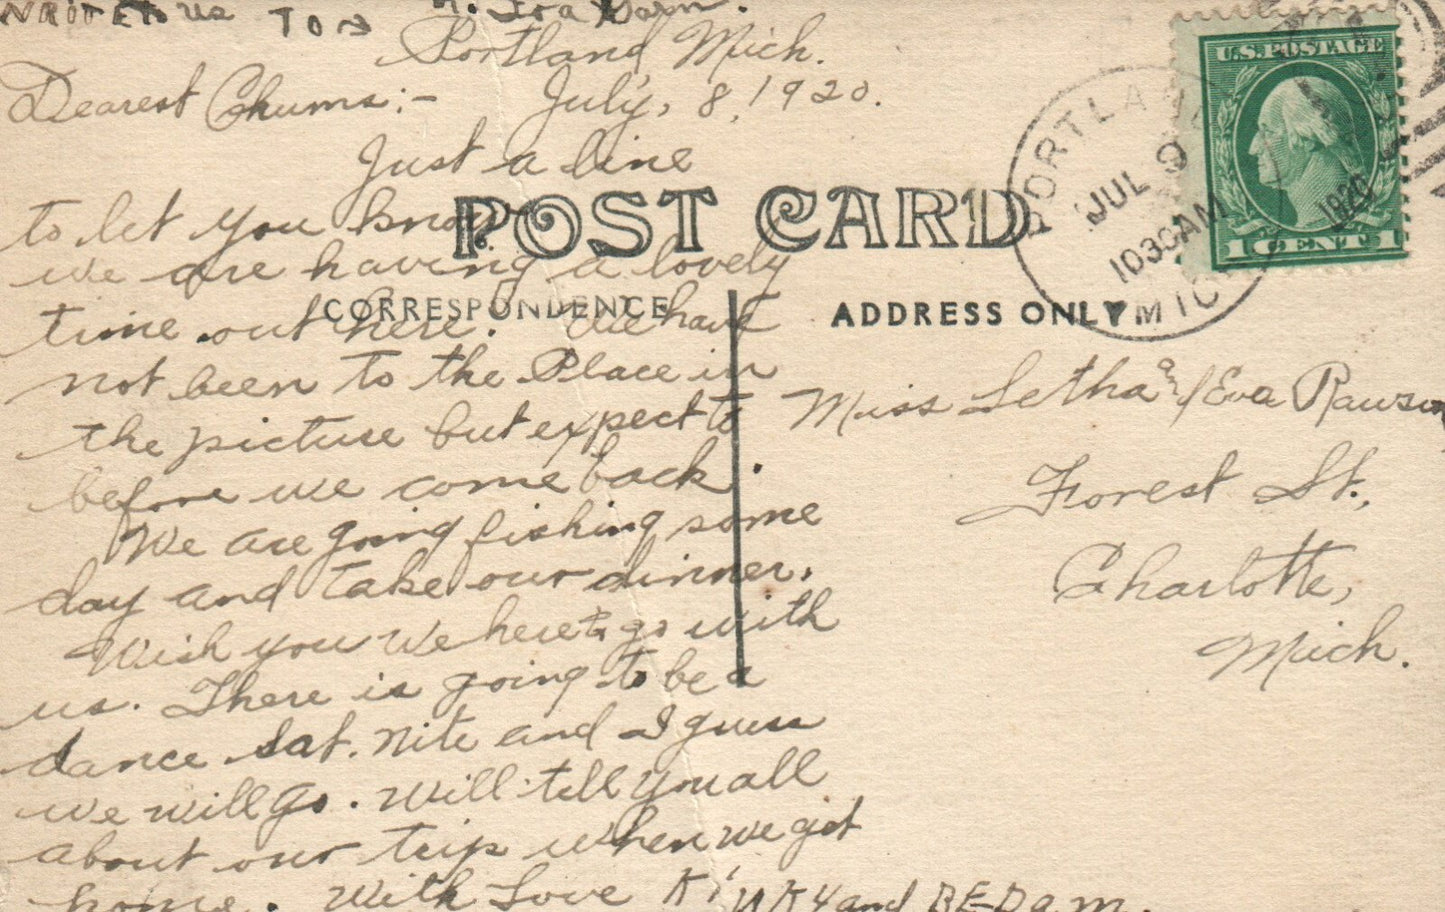 WRITE to us
Portland Mich.
Dearest Chums:- July, 8, 1920.
Just a line
to let you know
we are having a lovely
time out here. We have
not been to the Place in
the picture but expect to
before we come back.
We are going fishing some
day and take our dinner.
Wish you we here to go with
us. There is going to be a
dance Sat. nite and I guess
we will go. Will tell you all
about our trip when we get
home. With Love Kinky and BEDam.
POST CARD
CORRESPONDENCE
ADDRESS ONLY
U.S. POSTAGE
1 CENT 1
PORTLAND
JUL 9
1030AM
1920
MICH
Miss Letha and Eva Rawson
Forest St.,
Charlotte,
Mich.